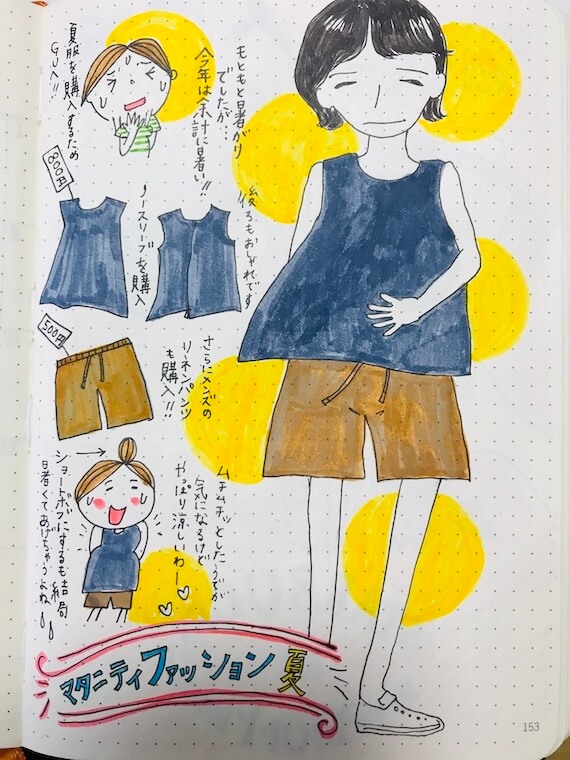 もともと暑がり
でしたが…
今年は余計に暑い!!
夏服を購入するため
GUへ!!
800円
ノースリーブを購入
後ろもおしゃれです
500円
さらにメンズの
リネンパンツ
も購入!!
ムチムチッとしたうでが
気になるけど
やっぱり涼しいわー
ショートボブにするも結局
暑くてあげちゃうよね
マタニティファッション夏
153